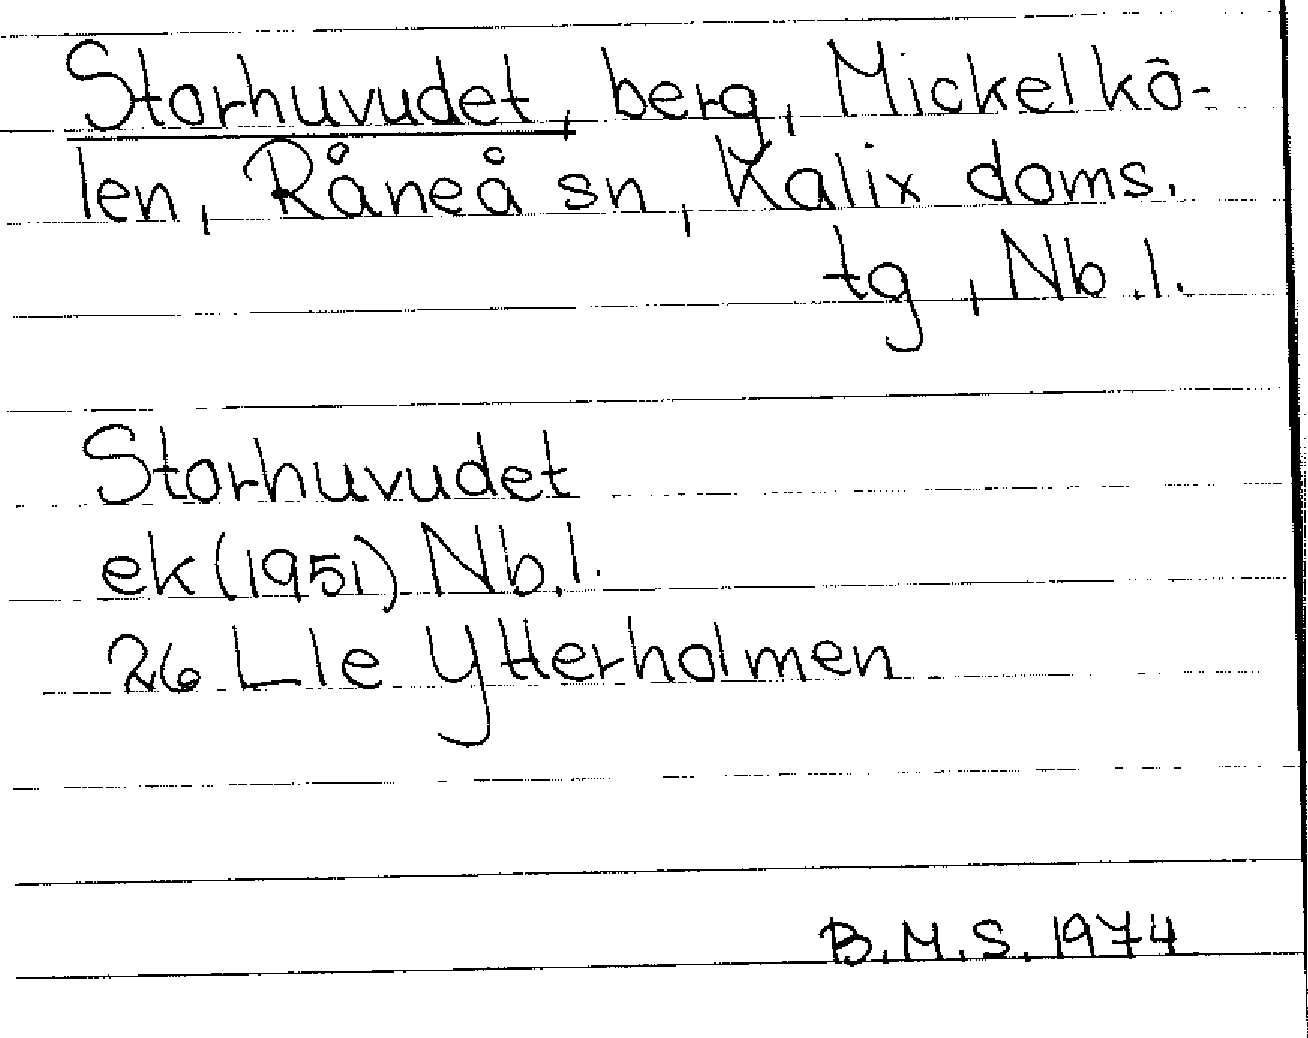 Storhuvudet, berg, Mickelkö-
len, Råneå sn, Kalix doms.
tg, Nb.l.
Storhuvudet
ek(1951) Nb.l.
26 Lle Ytterholmen
B.M.S. 1974